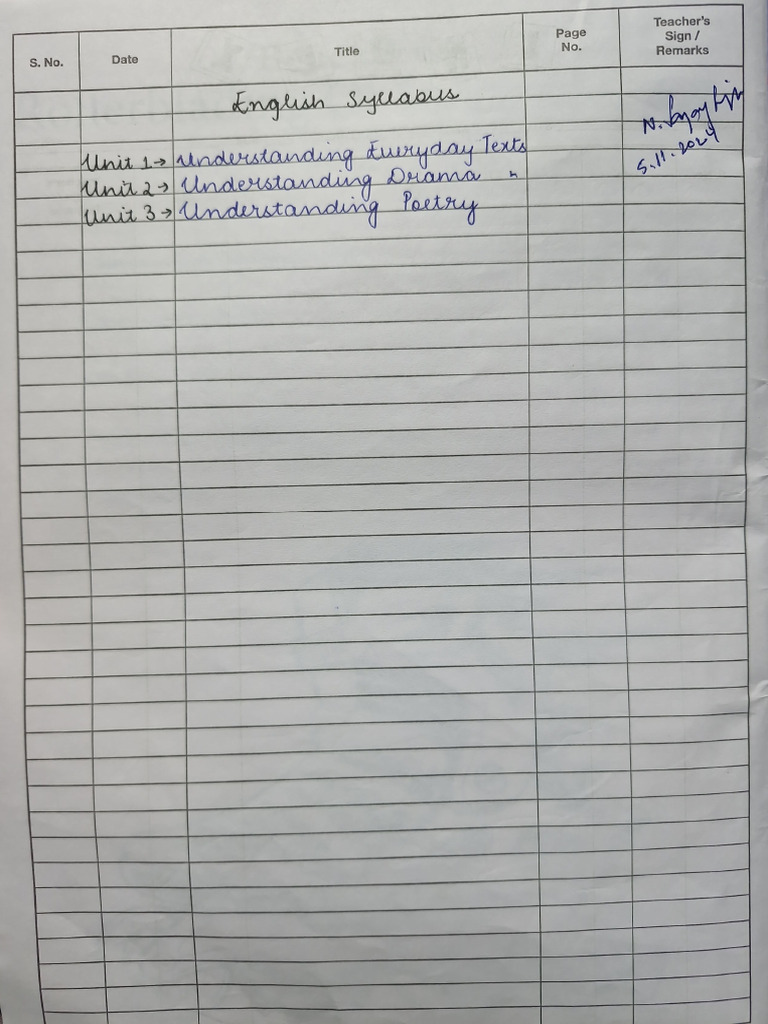 S. No. Date Title Page No. Teacher's Sign / Remarks
English Syllabus
Unit 1→ Understanding Everyday Texts
Unit 2→ Understanding Drama "
Unit 3→ Understanding Poetry
N.
5.11.2024